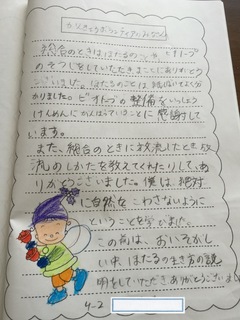 総合のときはほたるの
のそうじをしていただきまことにありがと
うございました。ほたるのことは
かりました。ビオトープの整備をいっしょう
けんめいにがんばっていることに感謝して
います。
また、総合のときに放流したとき放
流のしかたを教えてくれたりして、あ
りがとうございました。僕は、絶対
に自然をこわさないように
ということを学びました。
この前は、おいそがし
い中、ほたるの生き方の説
明をしていただきありがとうございまし
4-2